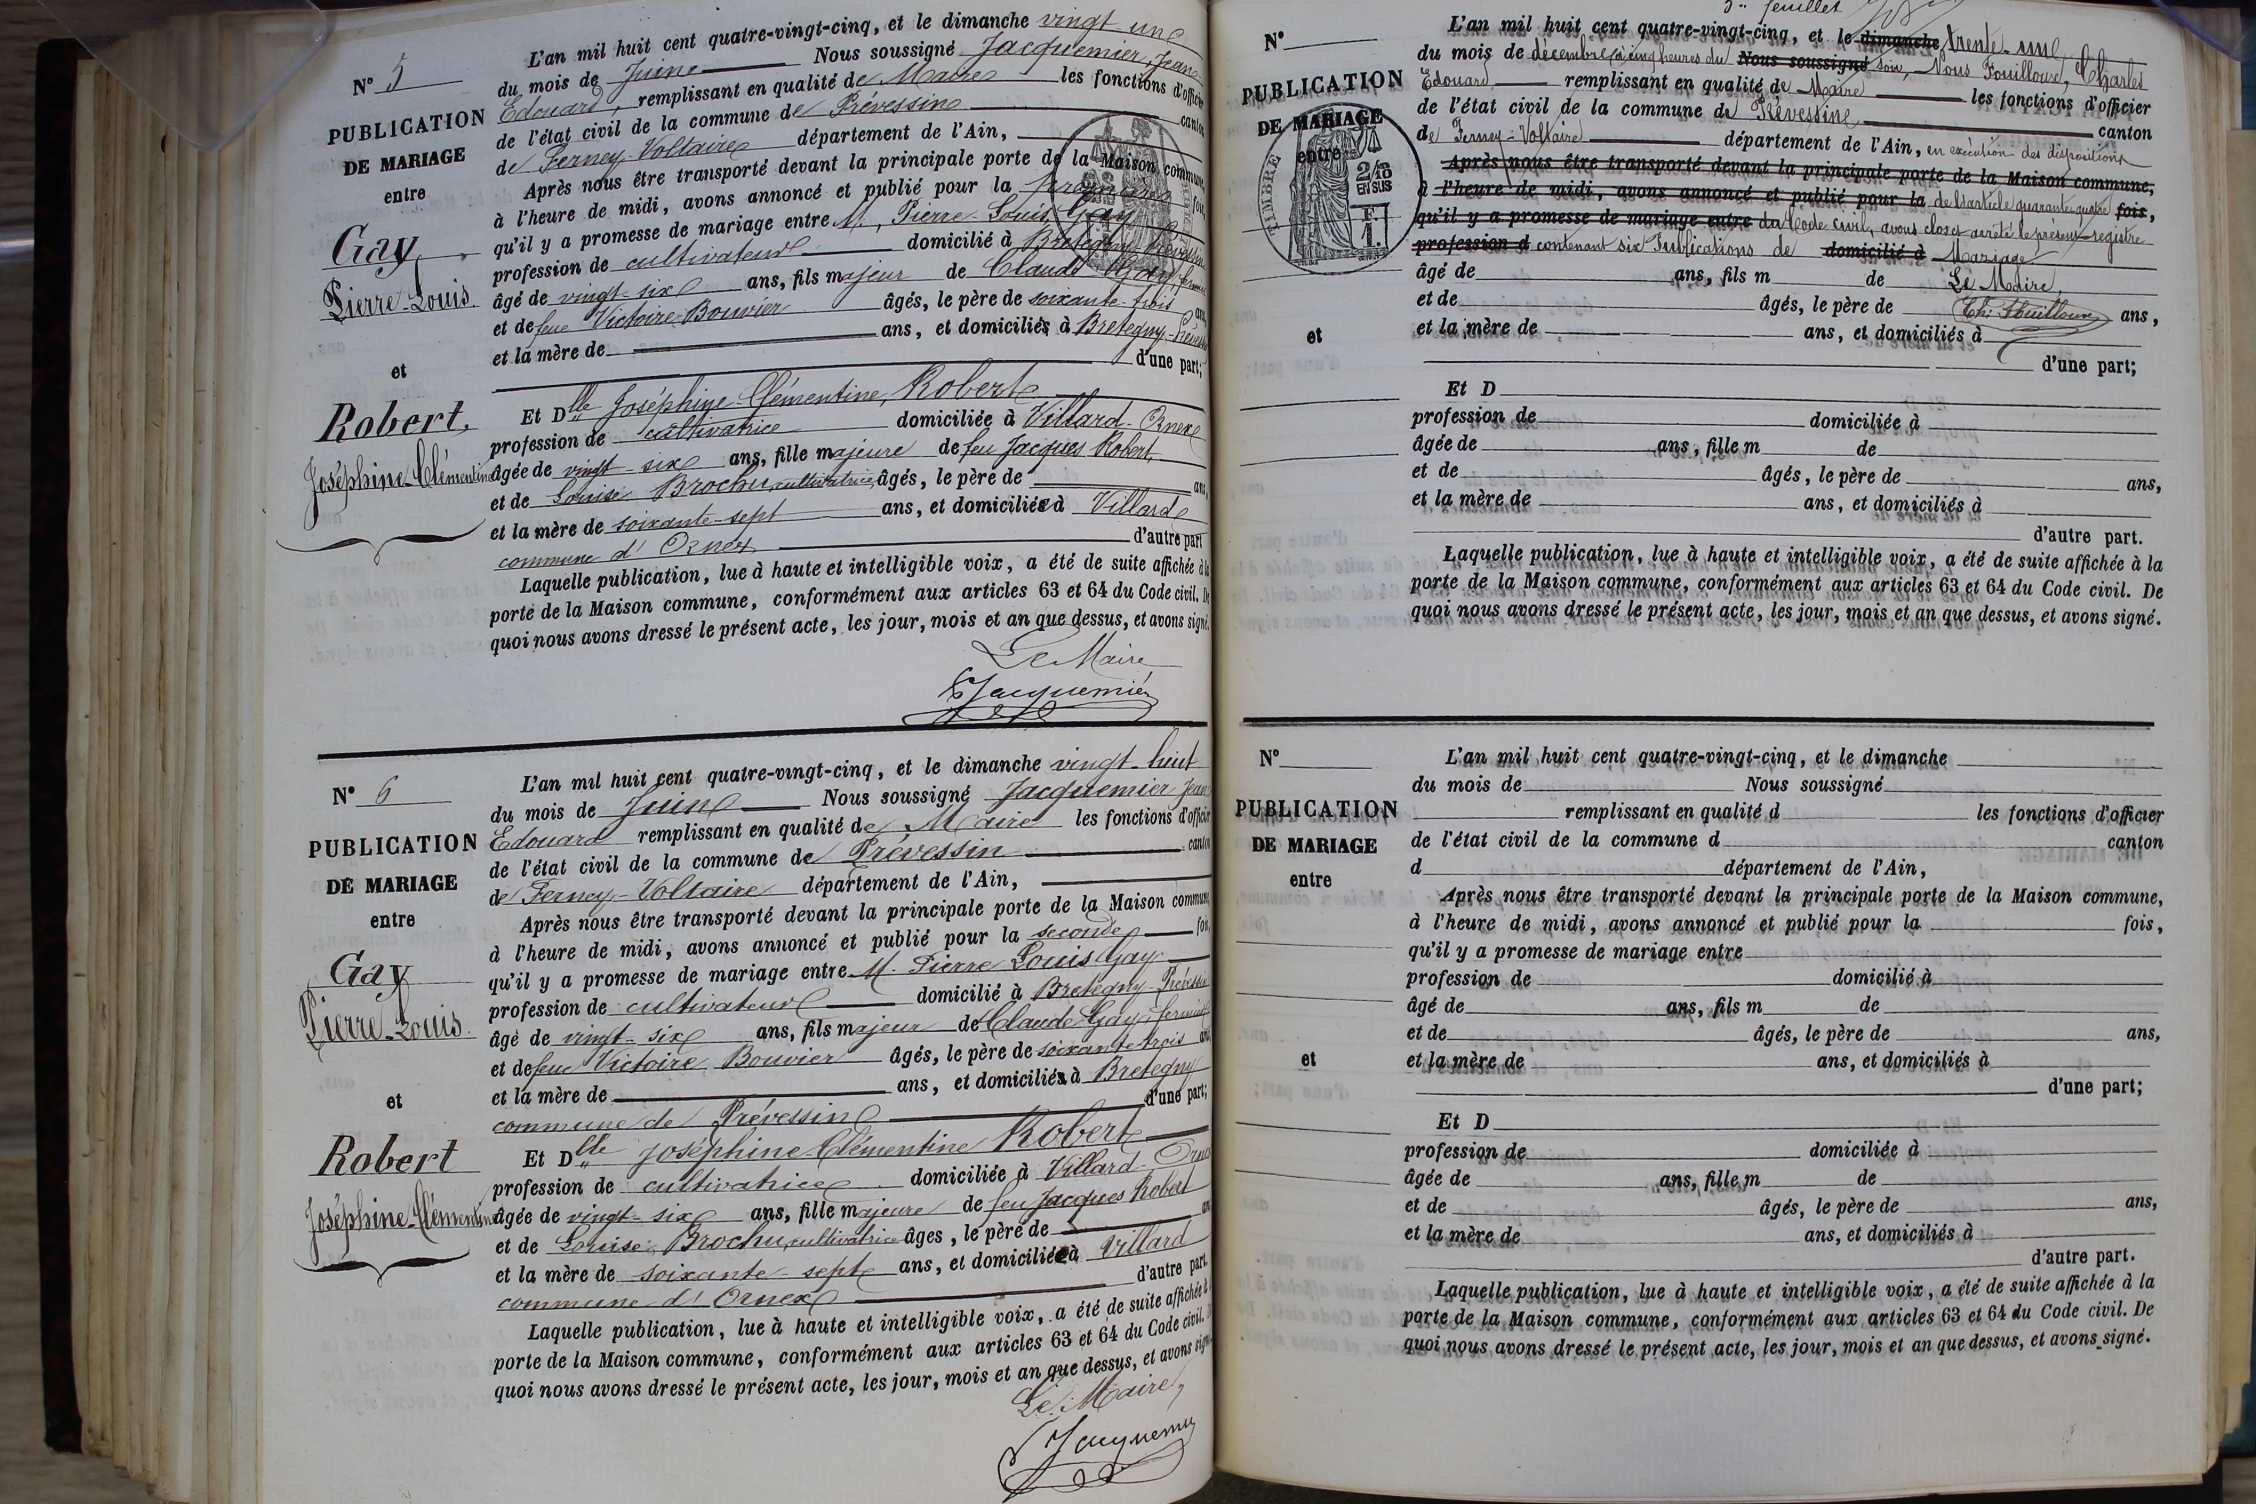 L'an mil huit cent quatre-vingt-cinq, et le dimanche vingt-un
N° 5
du mois de Juin Nous soussigné Jacquemier, Jean
Edouard, remplissant en qualité de Maire les fonctions d'officier
PUBLICATION
de l'état civil de la commune de Prévessin canton
DE MARIAGE
de Ferney-Voltaire département de l'Ain,
entre
Après nous être transporté devant la principale porte de la Maison commune,
à l'heure de midi, avons annoncé et publié pour la première fois,
Gay
qu'il y a promesse de mariage entre M. Pierre-Louis Gay
profession de cultivateur domicilié à Bretegny-Prévessin
Pierre-Louis
âgé de vingt-six ans, fils majeur de Claude Gay, fermier
et de feue Victoire Bouvier âgés, le père de soixante-trois ans,
et la mère de ans, et domiciliés à Bretegny-Prévessin
et
d'une part;
Et Dlle Joséphine-Clémentine Robert
Robert,
profession de cultivatrice domiciliée à Villard-Ornex
Joséphine-Clémentine
âgée de vingt-six ans, fille majeure de feu Jacques Robert,
et de Louise Brochu, cultivatrice, âgés, le père de ans,
et la mère de soixante-sept ans, et domiciliée à Villard
commune d'Ornex d'autre part
Laquelle publication, lue à haute et intelligible voix, a été de suite affichée à la
porte de la Maison commune, conformément aux articles 63 et 64 du Code civil. De
quoi nous avons dressé le présent acte, les jour, mois et an que dessus, et avons signé.
Le Maire
Jacquemier
L'an mil huit cent quatre-vingt-cinq, et le dimanche vingt-huit
N° 6
du mois de Juin Nous soussigné Jacquemier Jean
PUBLICATION
Edouard remplissant en qualité de Maire les fonctions d'officier
de l'état civil de la commune de Prévessin canton
DE MARIAGE
de Ferney-Voltaire département de l'Ain,
entre
Après nous être transporté devant la principale porte de la Maison commune,
à l'heure de midi, avons annoncé et publié pour la seconde fois,
Gay
qu'il y a promesse de mariage entre M. Pierre Louis Gay
profession de cultivateur domicilié à Bretegny-Prévessin
Pierre-Louis
âgé de vingt-six ans, fils majeur de Claude Gay, fermier
et de feue Victoire Bouvier âgés, le père de soixante trois ans,
et la mère de ans, et domiciliés à Bretegny
et
commune de Prévessin d'une part;
Et Dlle Joséphine-Clémentine Robert
Robert
profession de cultivatrice domiciliée à Villard-Ornex
Joséphine-Clémentine
âgée de vingt-six ans, fille majeure de feu Jacques Robert
et de Louise Brochu, cultivatrice âgés, le père de an
et la mère de soixante-sept ans, et domiciliée à Villard
commune d'Ornex d'autre part.
Laquelle publication, lue à haute et intelligible voix, a été de suite affichée à
porte de la Maison commune, conformément aux articles 63 et 64 du Code civil.
quoi nous avons dressé le présent acte, les jour, mois et an que dessus, et avons signé
Le Maire,
Jacquemier
3e feuillet
L'an mil huit cent quatre-vingt-cinq, et le dimanche trente-un
N°
du mois de décembre, à cinq heures du Nous soussigné soir, Nous Fouilloux, Charles
PUBLICATION
Edouard remplissant en qualité de Maire les fonctions d'officier
de l'état civil de la commune de Prévessin canton
DE MARIAGE
de Ferney-Voltaire département de l'Ain, en exécution des dispositions
entre
TIMBRE
2/10 EN SUS
F. 1.
Après nous être transporté devant la principale porte de la Maison commune,
à l'heure de midi, avons annoncé et publié pour la de l'article quarante-quatre fois,
qu'il y a promesse de mariage entre du Code civil, avons clos et arrêté le présent registre
profession d contenant six Publications de domicilié à Mariage.
âgé de ans, fils m de Le Maire,
et de âgés, le père de Ch. Fouilloux ans,
et la mère de ans, et domiciliés à
et
d'une part;
Et D
profession de domiciliée à
âgée de ans, fille m de
et de âgés, le père de ans,
et la mère de ans, et domiciliés à
d'autre part.
Laquelle publication, lue à haute et intelligible voix, a été de suite affichée à la
porte de la Maison commune, conformément aux articles 63 et 64 du Code civil. De
quoi nous avons dressé le présent acte, les jour, mois et an que dessus, et avons signé.
N°
L'an mil huit cent quatre-vingt-cinq, et le dimanche
du mois de Nous soussigné
PUBLICATION
remplissant en qualité d les fonctions d'officier
DE MARIAGE
de l'état civil de la commune d canton
entre
d département de l'Ain,
Après nous être transporté devant la principale porte de la Maison commune,
à l'heure de midi, avons annoncé et publié pour la fois,
qu'il y a promesse de mariage entre
profession de domicilié à
âgé de ans, fils m de
et de âgés, le père de ans,
et
et la mère de ans, et domiciliés à
d'une part;
Et D
profession de domiciliée à
âgée de ans, fille m de
et de âgés, le père de ans,
et la mère de ans, et domiciliés à
d'autre part.
Laquelle publication, lue à haute et intelligible voix, a été de suite affichée à la
porte de la Maison commune, conformément aux articles 63 et 64 du Code civil. De
quoi nous avons dressé le présent acte, les jour, mois et an que dessus, et avons signé.